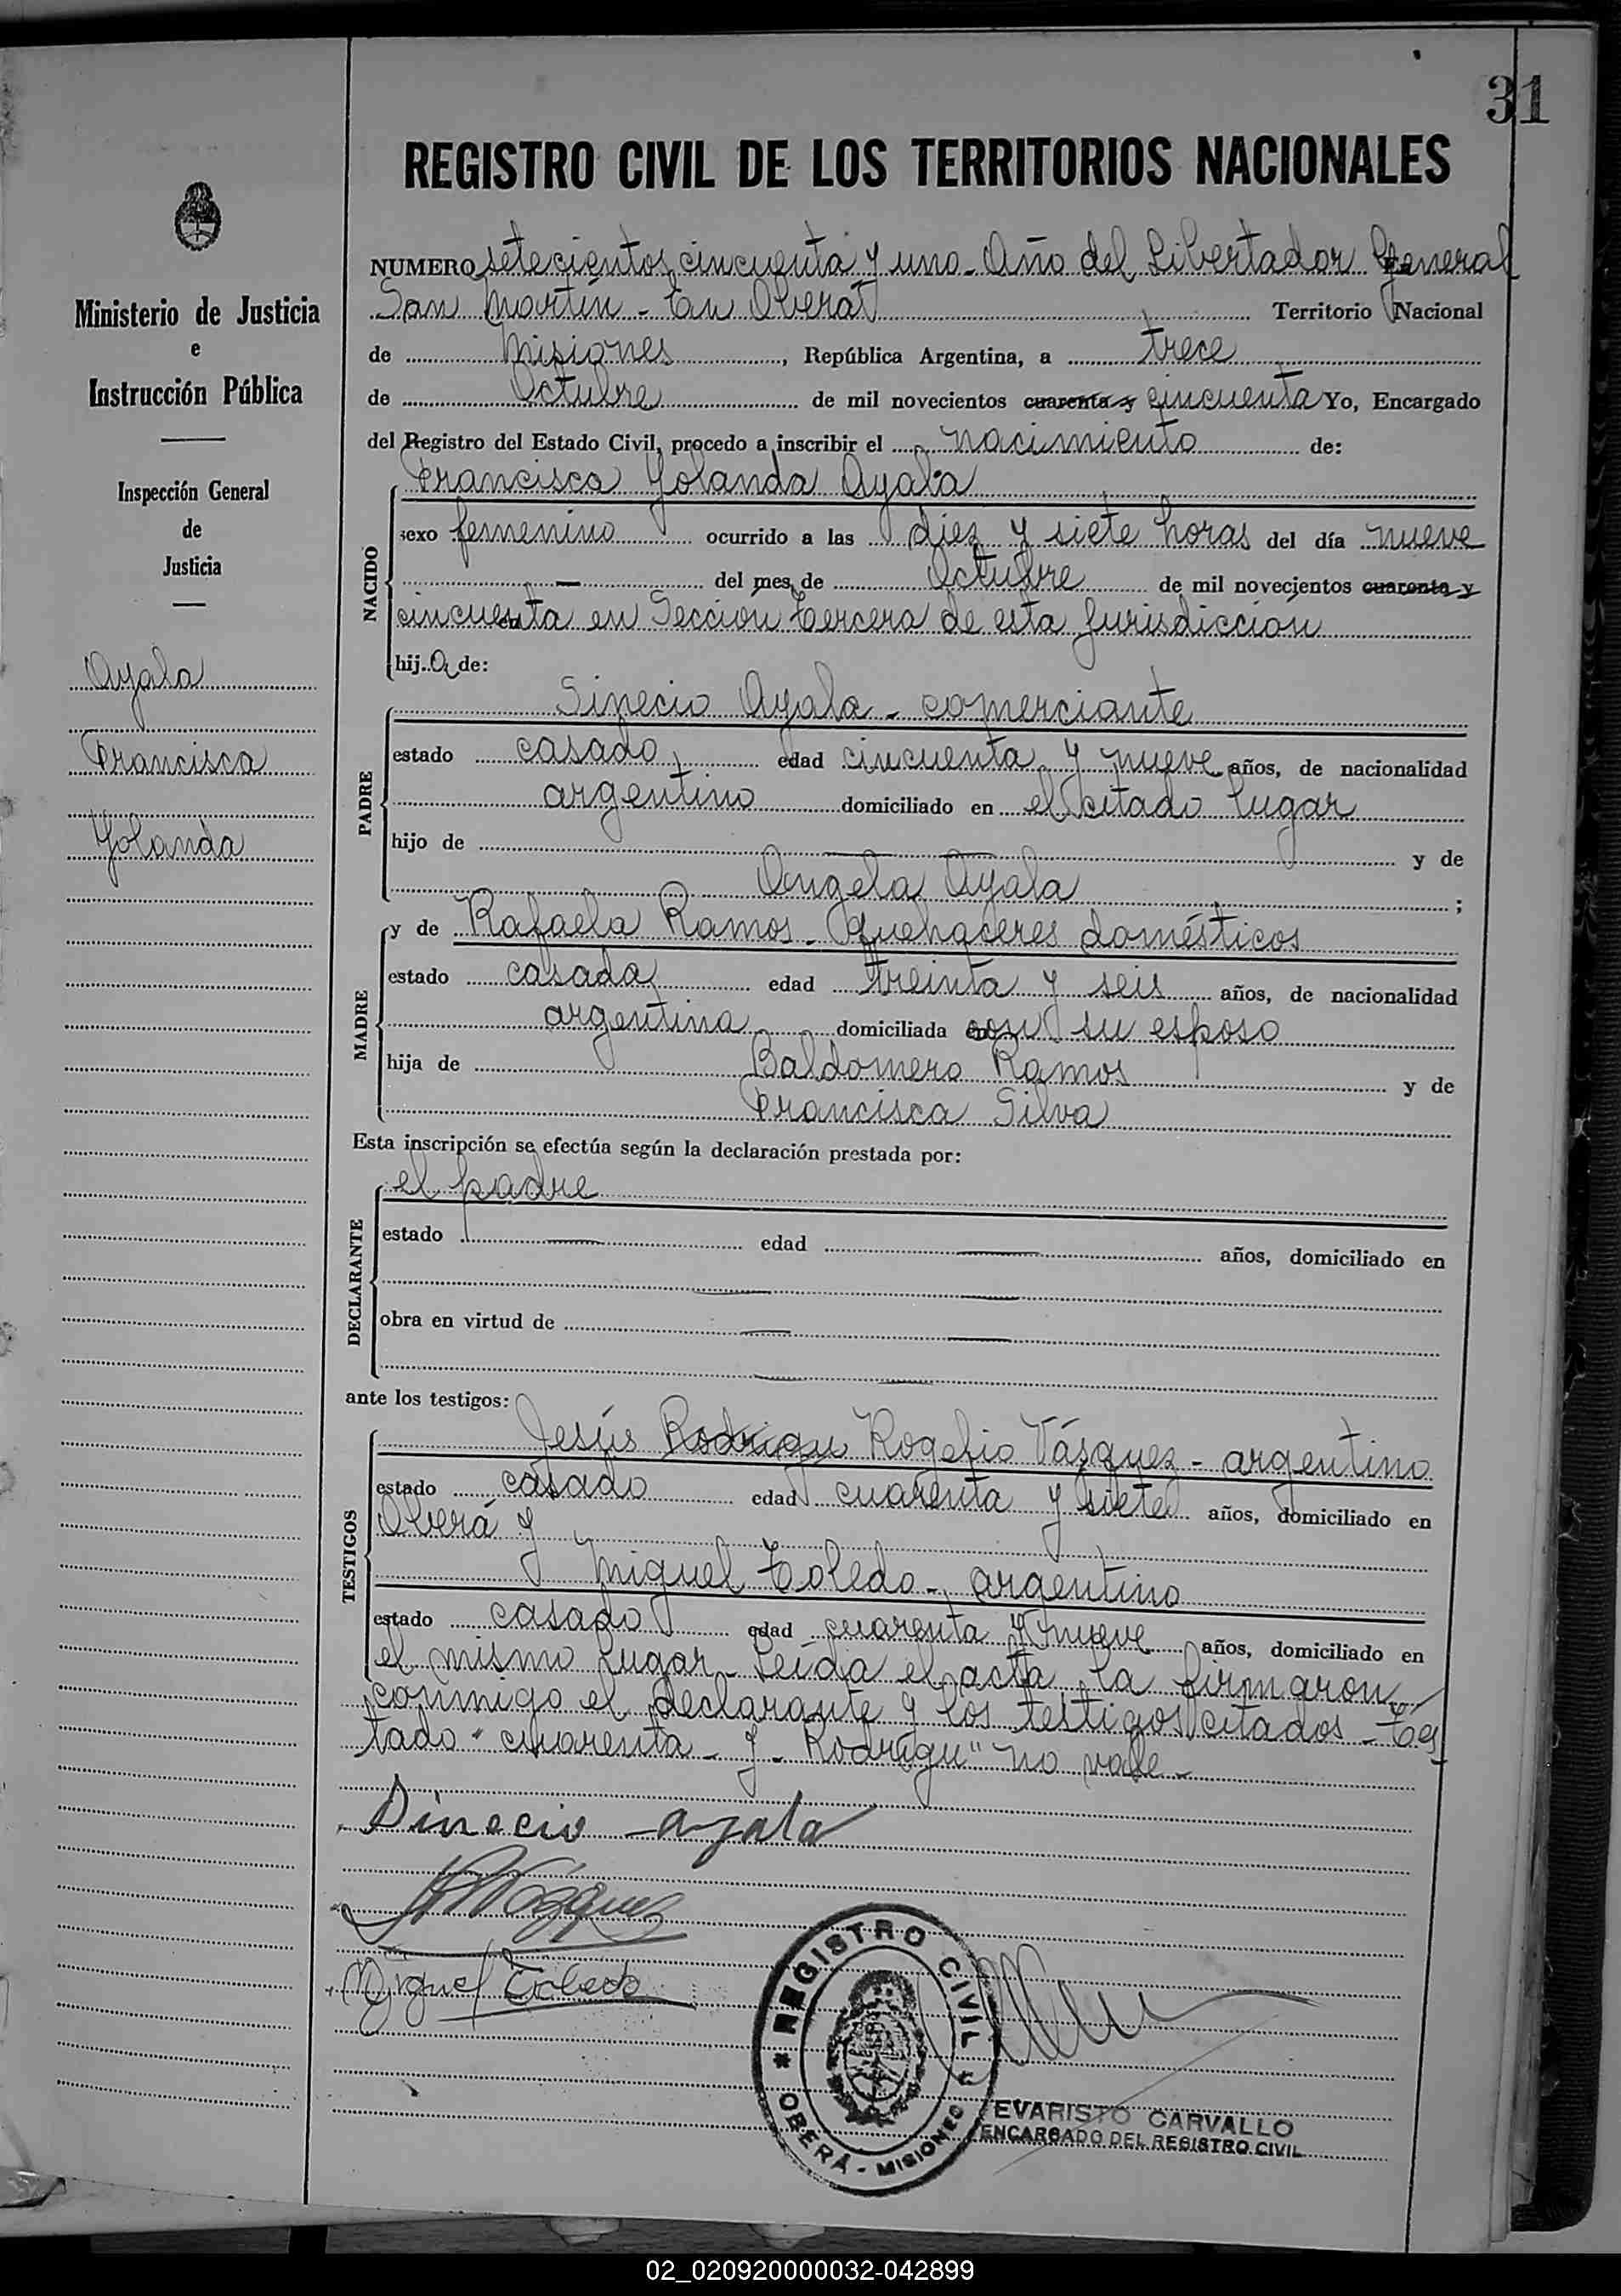 31
REGISTRO CIVIL DE LOS TERRITORIOS NACIONALES
Ministerio de Justicia
e
Instrucción Pública
Inspección General
de
Justicia
Ayala
Francisca
Yolanda
NUMERO setecientos cincuenta y uno - Año del Libertador General
San Martín - En Oberá Territorio Nacional
de Misiones, República Argentina, a trece
de Octubre de mil novecientos cuarenta y cincuenta Yo, Encargado
del Registro del Estado Civil, procedo a inscribir el nacimiento de:
Francisca Yolanda Ayala
NACIDO
sexo femenino ocurrido a las diez y siete horas del día nueve
— del mes de Octubre de mil novecientos cuarenta y
cincuenta en Sección tercera de esta jurisdicción
hija de:
Sinecio Ayala - comerciante
PADRE
estado casado edad cincuenta y nueve años, de nacionalidad
argentino domiciliado en el citado lugar
hijo de — y de
Angela Ayala ;
MADRE
y de Rafaela Ramos - Quehaceres domésticos
estado casada edad treinta y seis años, de nacionalidad
argentina domiciliada en con su esposo
hija de Baldomero Ramos y de
Francisca Silva
Esta inscripción se efectúa según la declaración prestada por:
el padre
DECLARANTE
estado — edad — años, domiciliado en
— —
obra en virtud de — —
— —
ante los testigos:
TESTIGOS
Jesús Rodrigu Rogelio Vásquez - argentino
estado casado edad cuarenta y siete años, domiciliado en
Oberá y
Miguel Toledo - argentino
estado casado edad cuarenta y nueve años, domiciliado en
el mismo lugar - Leída el acta la firmaron
conmigo el declarante y los testigos citados - Tes
tado "cuarenta - y - Rodrigu" no vale -
Sinecio Ayala
Vázquez
Miguel Toledo
REGISTRO CIVIL
OBERA - MISIONES
EVARISTO CARVALLO
ENCARGADO DEL REGISTRO CIVIL
02_020920000032-042899